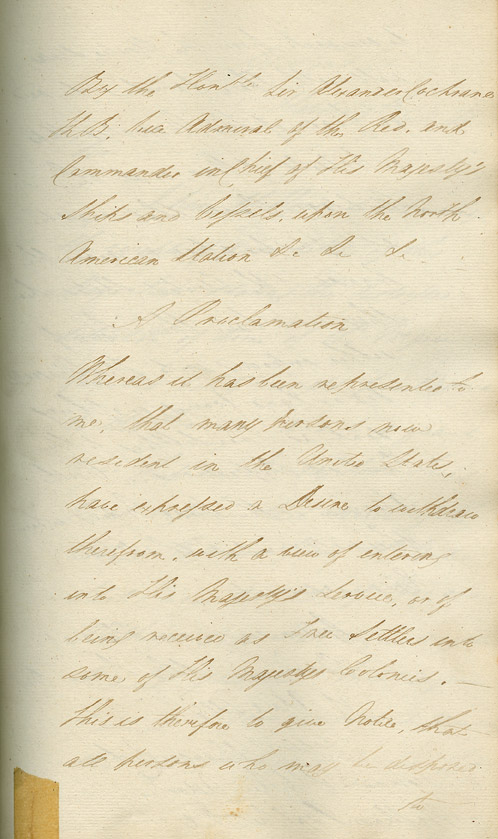 By the Honble Sir Alexander Cochrane
K.B. Vice Admiral of the Red, and
Commander in Chief of His Majesty's
Ships and Vessels, upon the North
American Station &c &c &c
A Proclamation
Whereas it has been represented to
me, that many persons now
resident in the United States,
have expressed a Desire to withdraw
therefrom, with a view of entering
into His Majesty's Service, or of
being received as Free Settlers into
some of His Majestys Colonies. —
This is therefore to give Notice, that
all persons who may be disposed
to